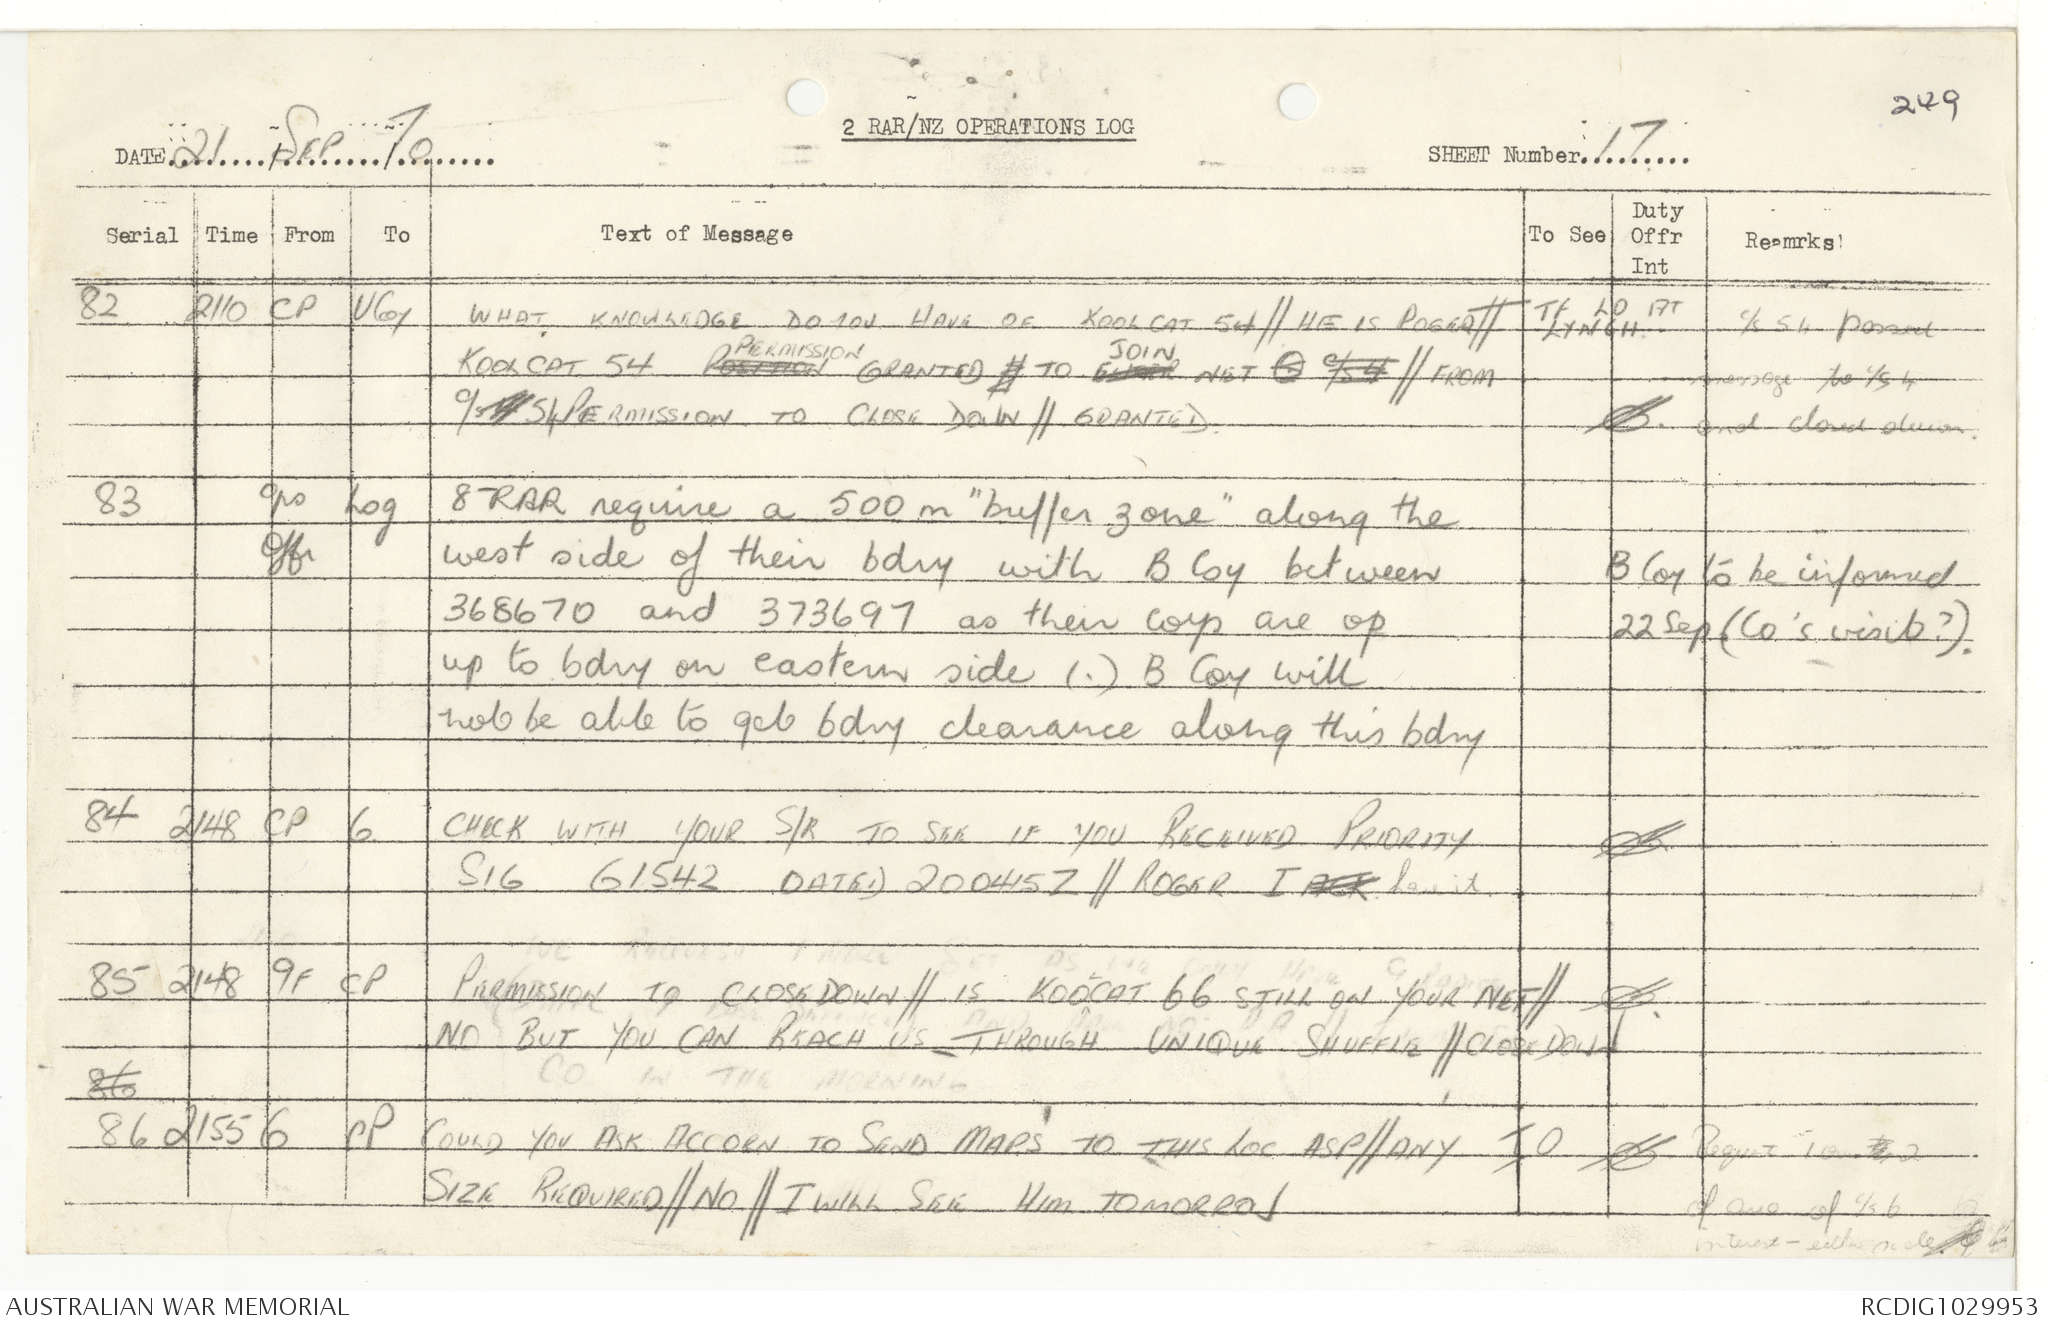 249
2 RAR/NZ OPERATIONS LOG
DATE 21 SEP 70
SHEET Number 17
Serial Time From To Text of Message To See Duty Offr Int Reamrks
82 2110 CP V Coy WHAT KNOWLEDGE DO YOU HAVE OF KOOLCAT 54 // HE IS ROGER // TF LO AT LYNCH. c/s 5h passed
KOOLCAT 54 PERMISSION GRANTED TO JOIN NET // FROM message to c/s 4
PERMISSION TO CLOSE DOWN // GRANTED. and closed down.
83 Ops Log 8 RAR require a 500 m "buffer zone" along the
Offr west side of their bdry with B Coy between B Coy to be informed
368670 and 373697 as their coys are op 22 Sep (Co's visit?).
up to bdry on eastern side (.) B Coy will
not be able to get bdry clearance along this bdry
84 2148 CP 6 CHECK WITH YOUR S/R TO SEE IF YOU RECEIVED PRIORITY
SIG G1542 DATED 200415Z // ROGER I have it.
85 2148 9F CP PERMISSION TO CLOSE DOWN // IS KOOCAT 66 STILL ON YOUR NET //
NO BUT YOU CAN REACH US THROUGH UNIQUE SHUFFLE // CLOSE DOWN
CO IN THE MORNING
86
86 2155 6 CP COULD YOU ASK ACCORN TO SEND MAPS TO THIS LOC ASP // ANY IO
SIZE REQUIRED // NO // I WILL SEE HIM TOMORROW
of area of c/s 6
interest - either side
AUSTRALIAN WAR MEMORIAL
RCDIG1029953